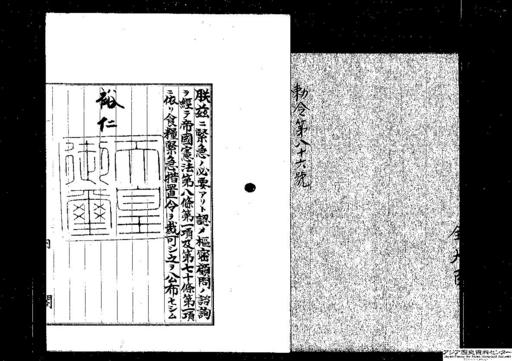 勅令第八十六號
朕茲ニ緊急ノ必要アリト認メ樞密顧問ノ諮詢
ヲ經テ帝國憲法第八條第一項及第七十條第一項
ニ依リ食糧緊急措置令ヲ裁可シ之ヲ公布セシム
裕仁
天皇御璽
内閣
アジア歴史資料センター